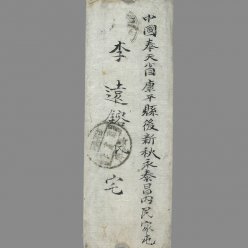 中國奉天省康平縣後新秋永泰昌內民家屯
李遠 宅